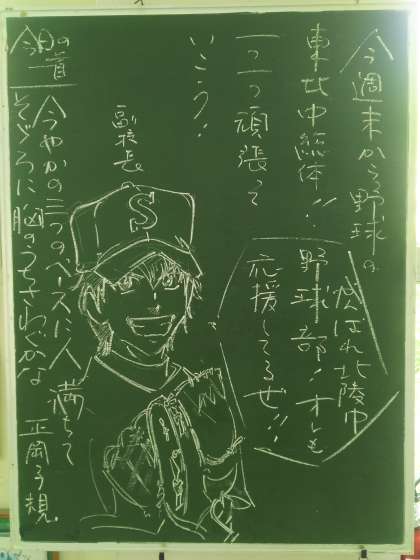 今週末から野球の
東北中総体!!
一つ一つ頑張って
いこう!
がんばれ北陵中
野球部!オレも
応援してるぜ!!
副校長
S
今日の一首
今やかの三つのベースに人満ちて
そぞろに胸のうちさわぐかな
正岡子規